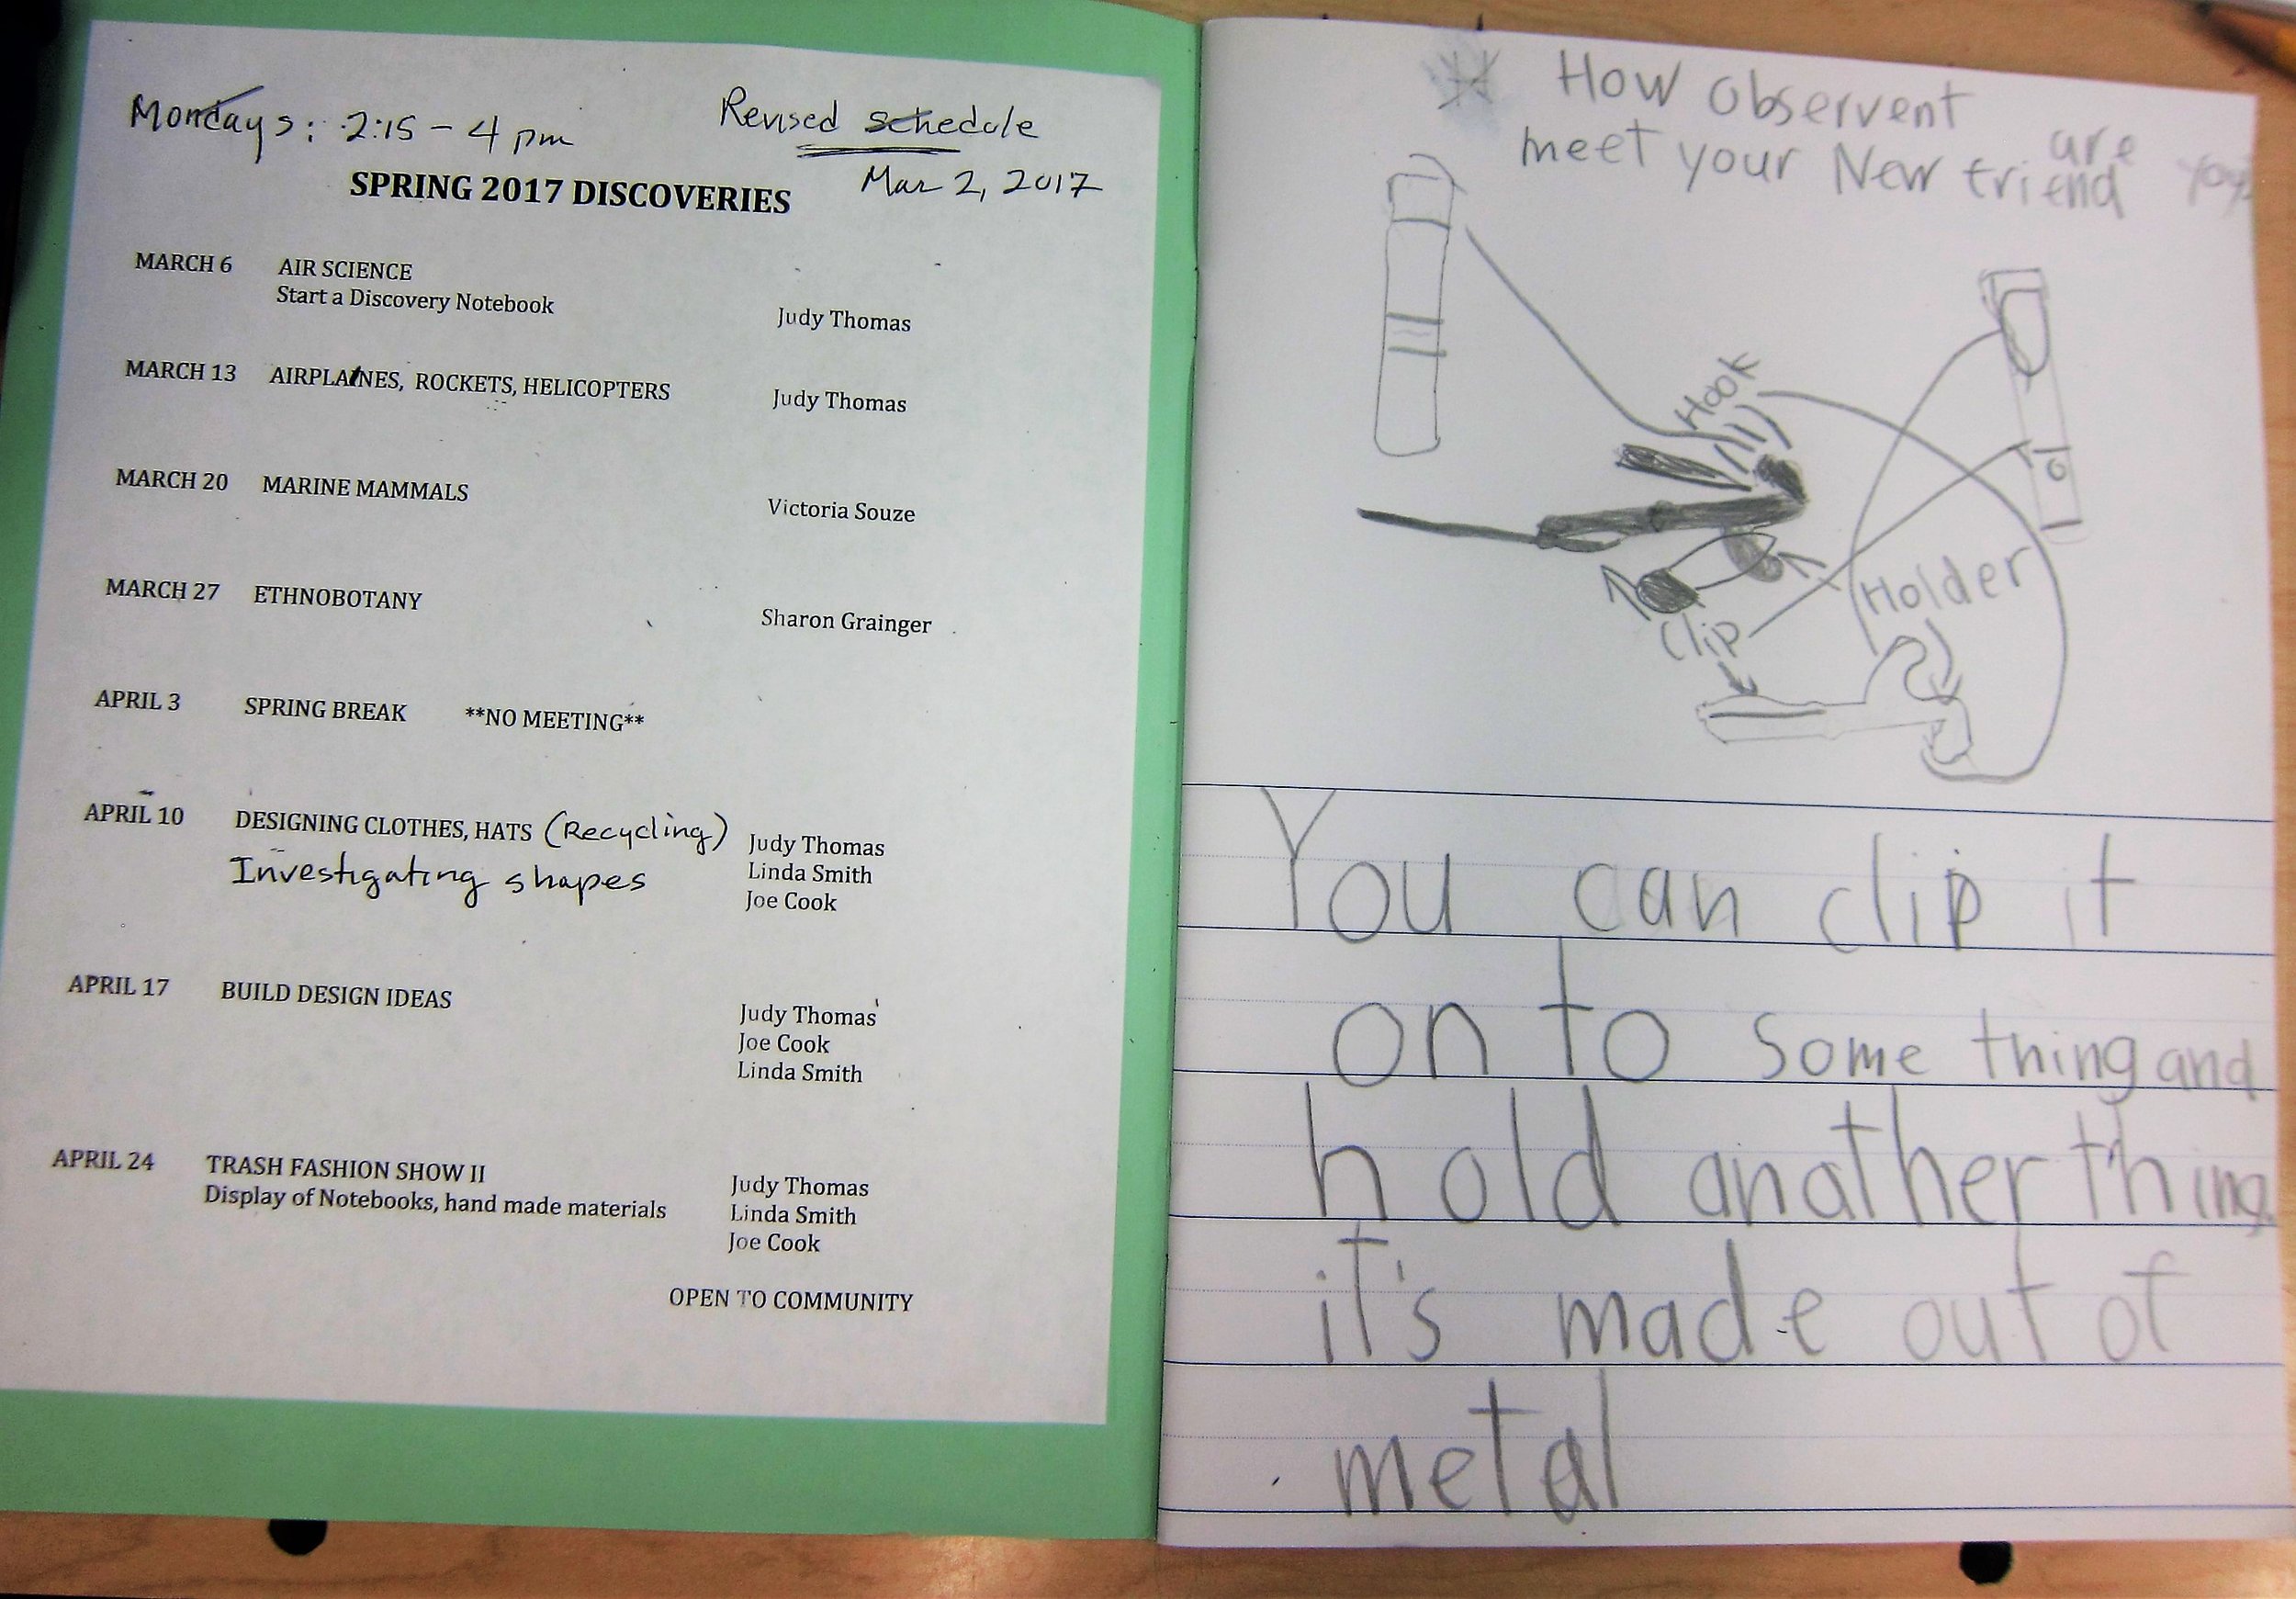 Mondays: 2:15 - 4 pm
Revised schedule
Mar 2, 2017
SPRING 2017 DISCOVERIES
MARCH 6 AIR SCIENCE
Start a Discovery Notebook
Judy Thomas
MARCH 13 AIRPLANES, ROCKETS, HELICOPTERS
Judy Thomas
MARCH 20 MARINE MAMMALS
Victoria Souze
MARCH 27 ETHNOBOTANY
Sharon Grainger
APRIL 3 SPRING BREAK **NO MEETING**
APRIL 10 DESIGNING CLOTHES, HATS (Recycling)
Judy Thomas
Investigating shapes
Linda Smith
Joe Cook
APRIL 17 BUILD DESIGN IDEAS
Judy Thomas
Joe Cook
Linda Smith
APRIL 24 TRASH FASHION SHOW II
Display of Notebooks, hand made materials
Judy Thomas
Linda Smith
Joe Cook
OPEN TO COMMUNITY
How observent
are you?
meet your New friend
Hook
Holder
Clip
You can clip it
on to some thing and
hold another thing.
it's made out of
metal